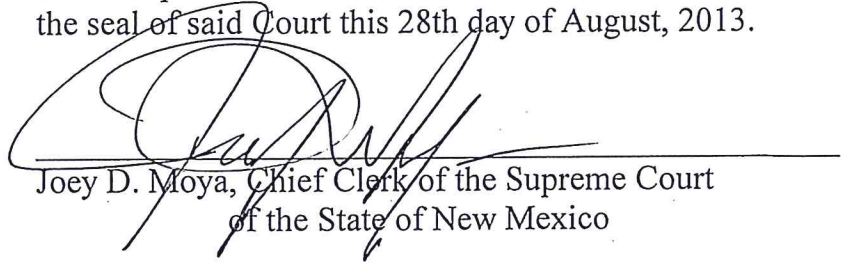 the seal of said Court this 28th day of August, 2013.
Joey D. Moya, Chief Clerk of the Supreme Court
of the State of New Mexico